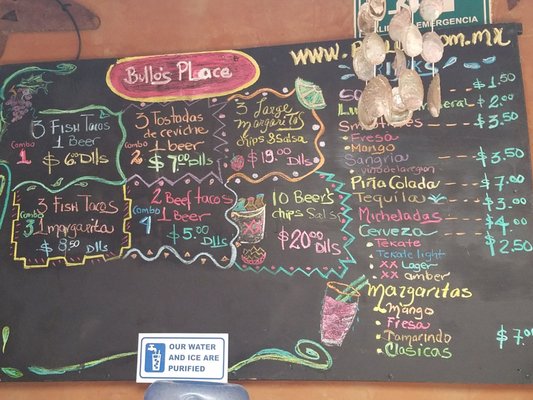 EMERGENCIA
Bullo's Place
www.
.com.mx
3 Fish Tacos
1 Beer
Combo
1
$ 6.00 Dlls
3 Tostadas
de ceviche
1 Beer
Combo
2
$7.00 Dlls
3 Large
Margaritas
chips & Salsa
$19.00 Dlls
3 Fish Tacos
Combo
3
1 margarita
$ 8.50 Dlls
2 Beef tacos
Combo
4
1 Beer
$5.00 Dlls
10 Beers
chips Salsa
$20.00 Dlls
Drinks
$ 1.50
mineral $ 2.00
$ 3.50
Fresa
Mango
Sangria $ 3.50
vino de la region
Piña Colada $ 7.00
Tequila $ 3.00
Micheladas $ 4.00
Cerveza $ 2.50
Tekate
Tekate light
XX Lager
XX amber
Margaritas
Mango
Fresa
Tamarindo
Clasicas
$ 7.00
OUR WATER
AND ICE ARE
PURIFIED